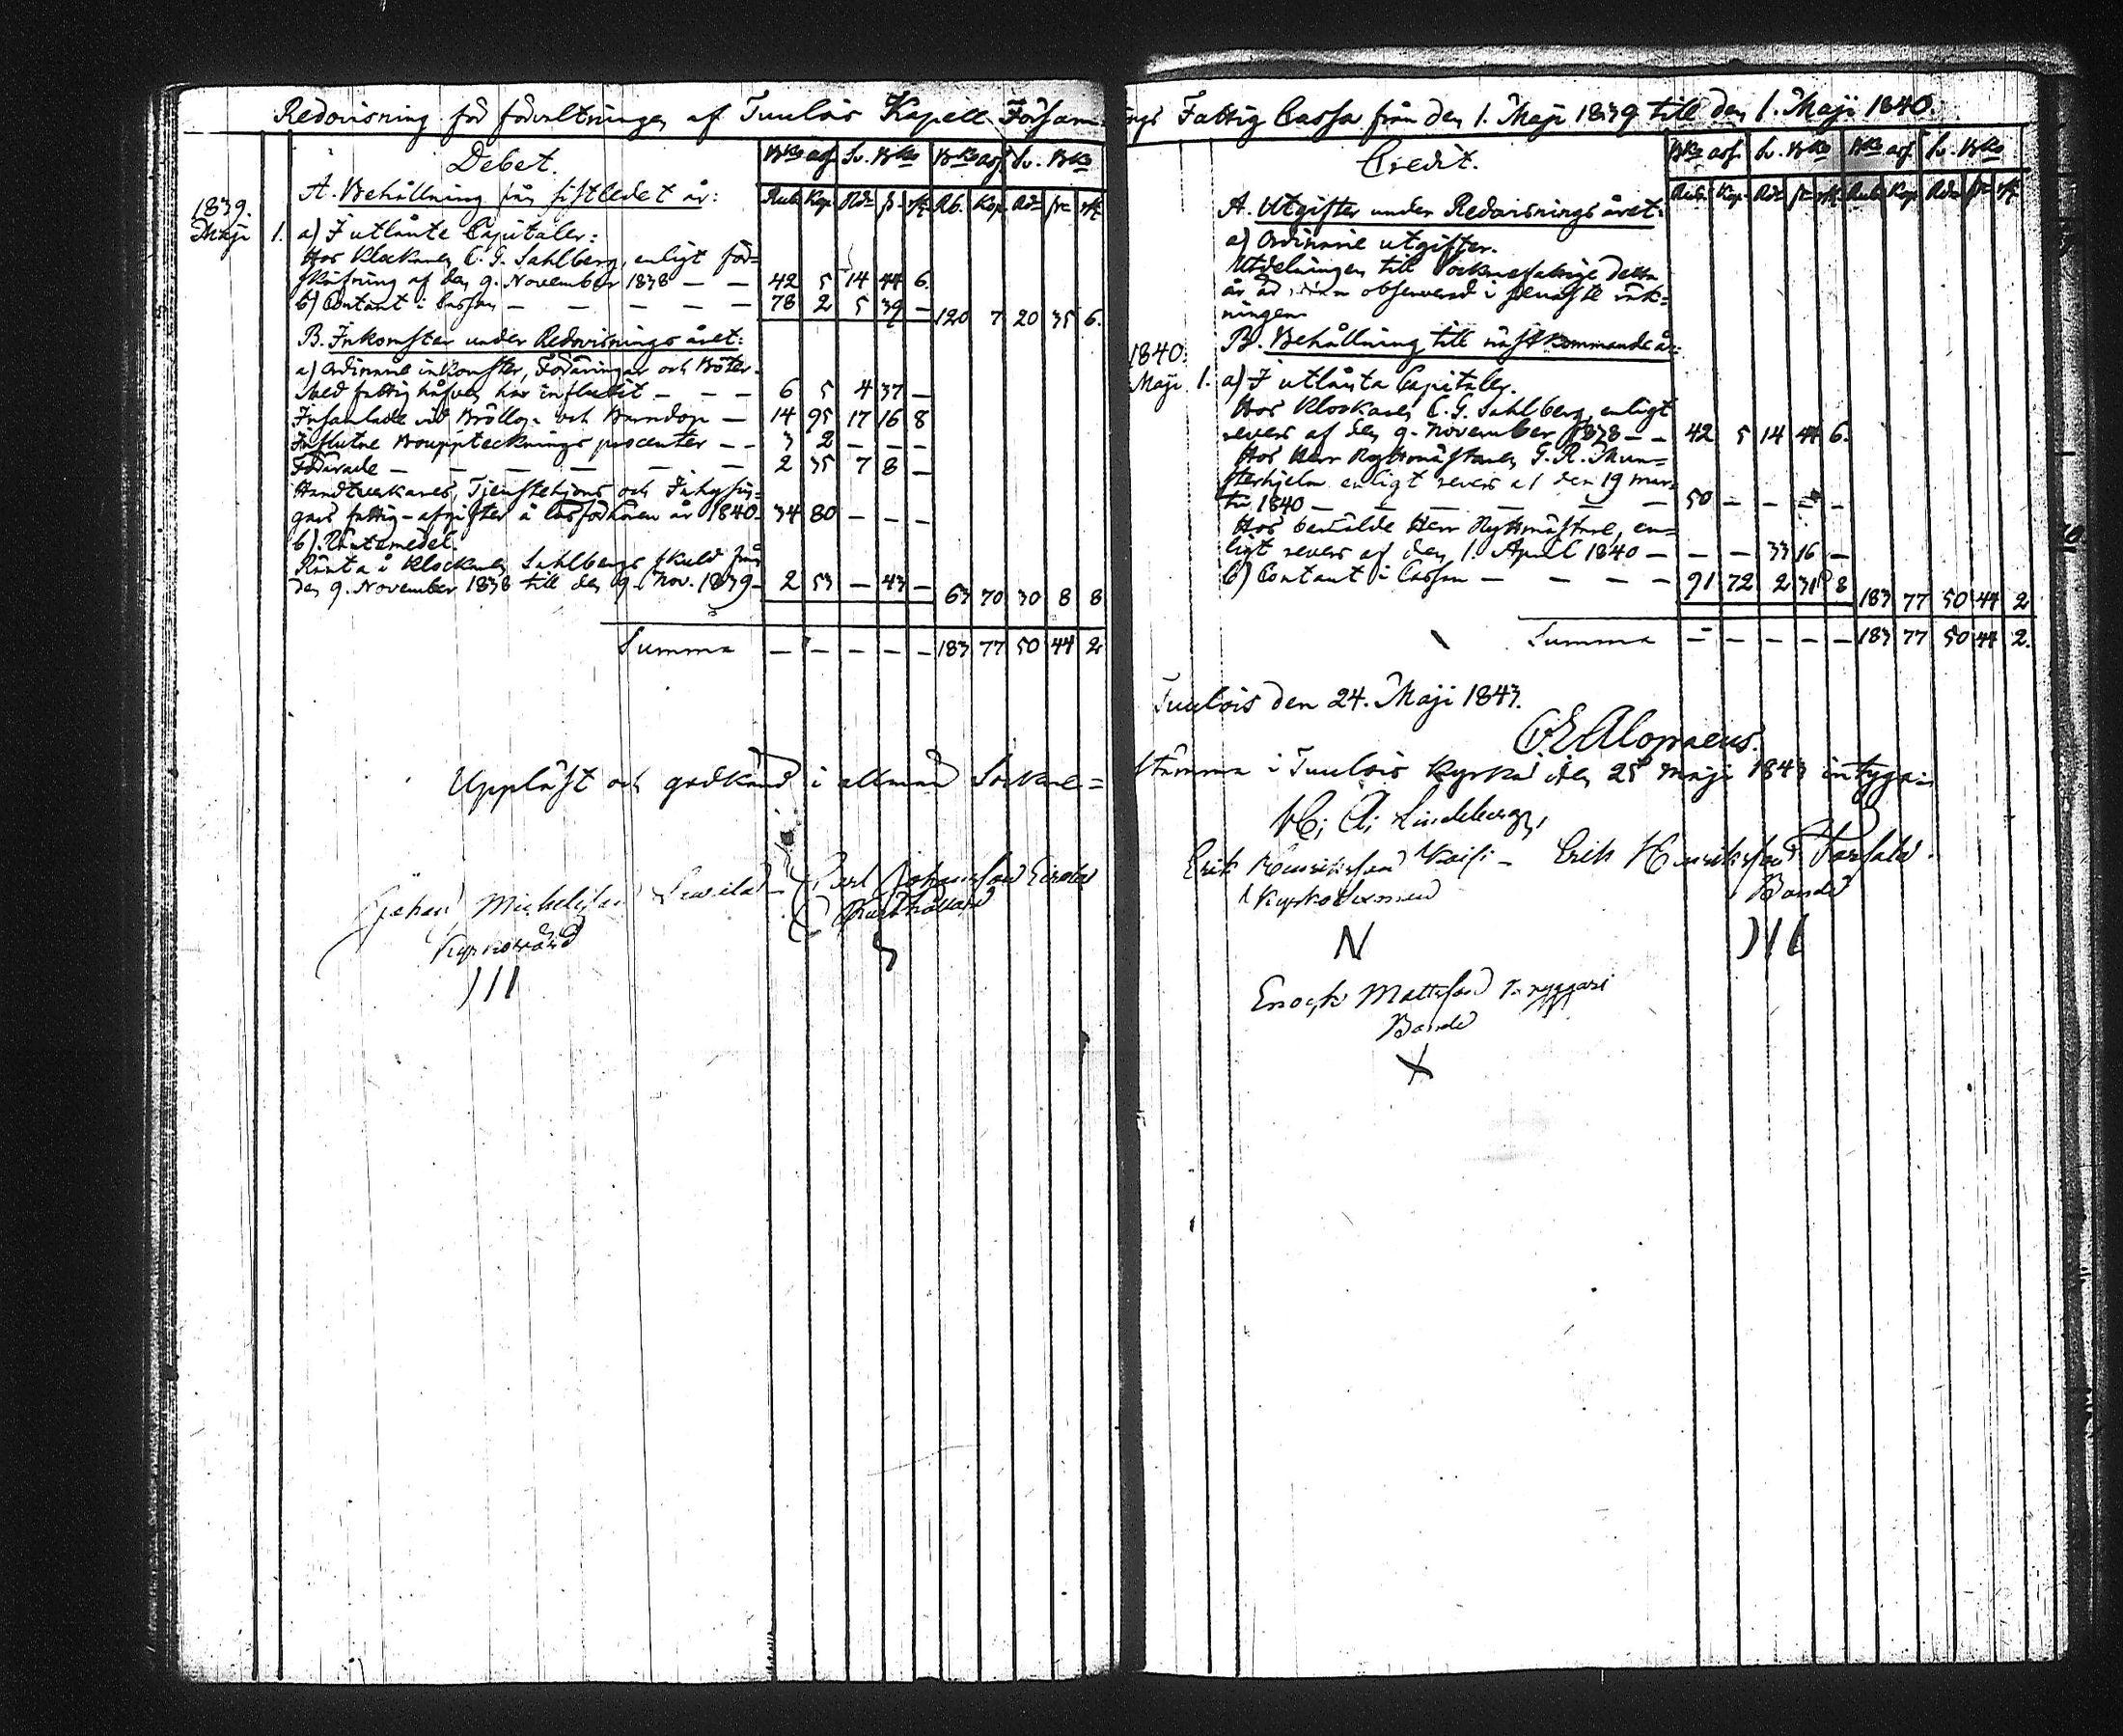 Redovisning för förvaltningen af Tuulois Kapell Församlings Fattig Cassa från den 1. Maji 1839 till den 1. Maji 1840.
Debet. Bko ass. Sv. Bko Bko ass. Sv. Bko
A. Behållning från sistledet år: Rub. Kop. Rdr s. rst. Rb. Kop. Rdr s. rst.
1839.
Maji 1. a) I utlånte Capitaler:
Hos Klockaren C. G. Sahlberg, enligt för=
skrifning af den 9. November 1838 — — 42 5 14 44 6.
b) Contant i Cassan — — — — — 78 2 5 39 — 120 7 20 35 6.
B. Inkomster under Redovisnings året:
a) Ordinarie inkomster, Föräringar och Böter.
Med fattig håfven har influtit — — — 6 5 4 37 —
Insamlade vid Bröllop och Barndop — 14 95 17 16 8
Influtne Boupptecknings procenter — — 3 2 — — —
Förärade — — — — — — 2 35 7 8 —
Handtverkares, Tjenstehjons och Inhysin=
gars fattig-afgifter å Cassören år 1840. 34 80 — — —
b). Räntemedel.
Ränta å Klockaren Sahlbergs skuld från
den 9. November 1838 till den 9. Nov. 1839. 2 53 — 43 — 63 70 30 8 8
Summa — — — — — 183 77 50 44 2
Uppläst och godkänd i allmän Sockne=
Johan Michelsson
Kyrkovärd
Carl Johansson
Credit. Bko ass. Sv. Bko Bko ass. Sv. Bko
Rub. Kop. Rdr s. rst. Rub. Kop. Rdr s. rst.
A. Utgifter under Redovisnings året:
a) Ordinarie utgifter.
Utdelningen till Sockne fattige detta
år är redan observerad i senaste räk=
ningen.
1840. B. Behållning till nästkommande år:
Maji 1. a) I utlånta Capitaler.
Hos Klockaren C. G. Sahlberg, enligt
revers af den 9. November 1838 — — 42 5 14 44 6.
Hos Herr Ryttmästaren G. R. Mun=
sterhjelm enligt revers af den 19 mar=
tii 1840 — — — — — 50 — — — —
Hos bemälde Herr Ryttmästare, en=
ligt revers af den 1. April 1840 — — — 33 16 —
b) Contant i Cassan — — — — 91 72 2 31 8 183 77 50 44 2
Summa — — — — — 183 77 50 44 2.
Tuulois den 24. Maji 1843.
C E Alopaeus.
stämma i Tuulois Kyrka den 25 Maji 1843 intyga:
Lindeberg,
Erik Henriksson
Erik Henriksson
Bonde
N
Enoch Mattsson
Bonde
X